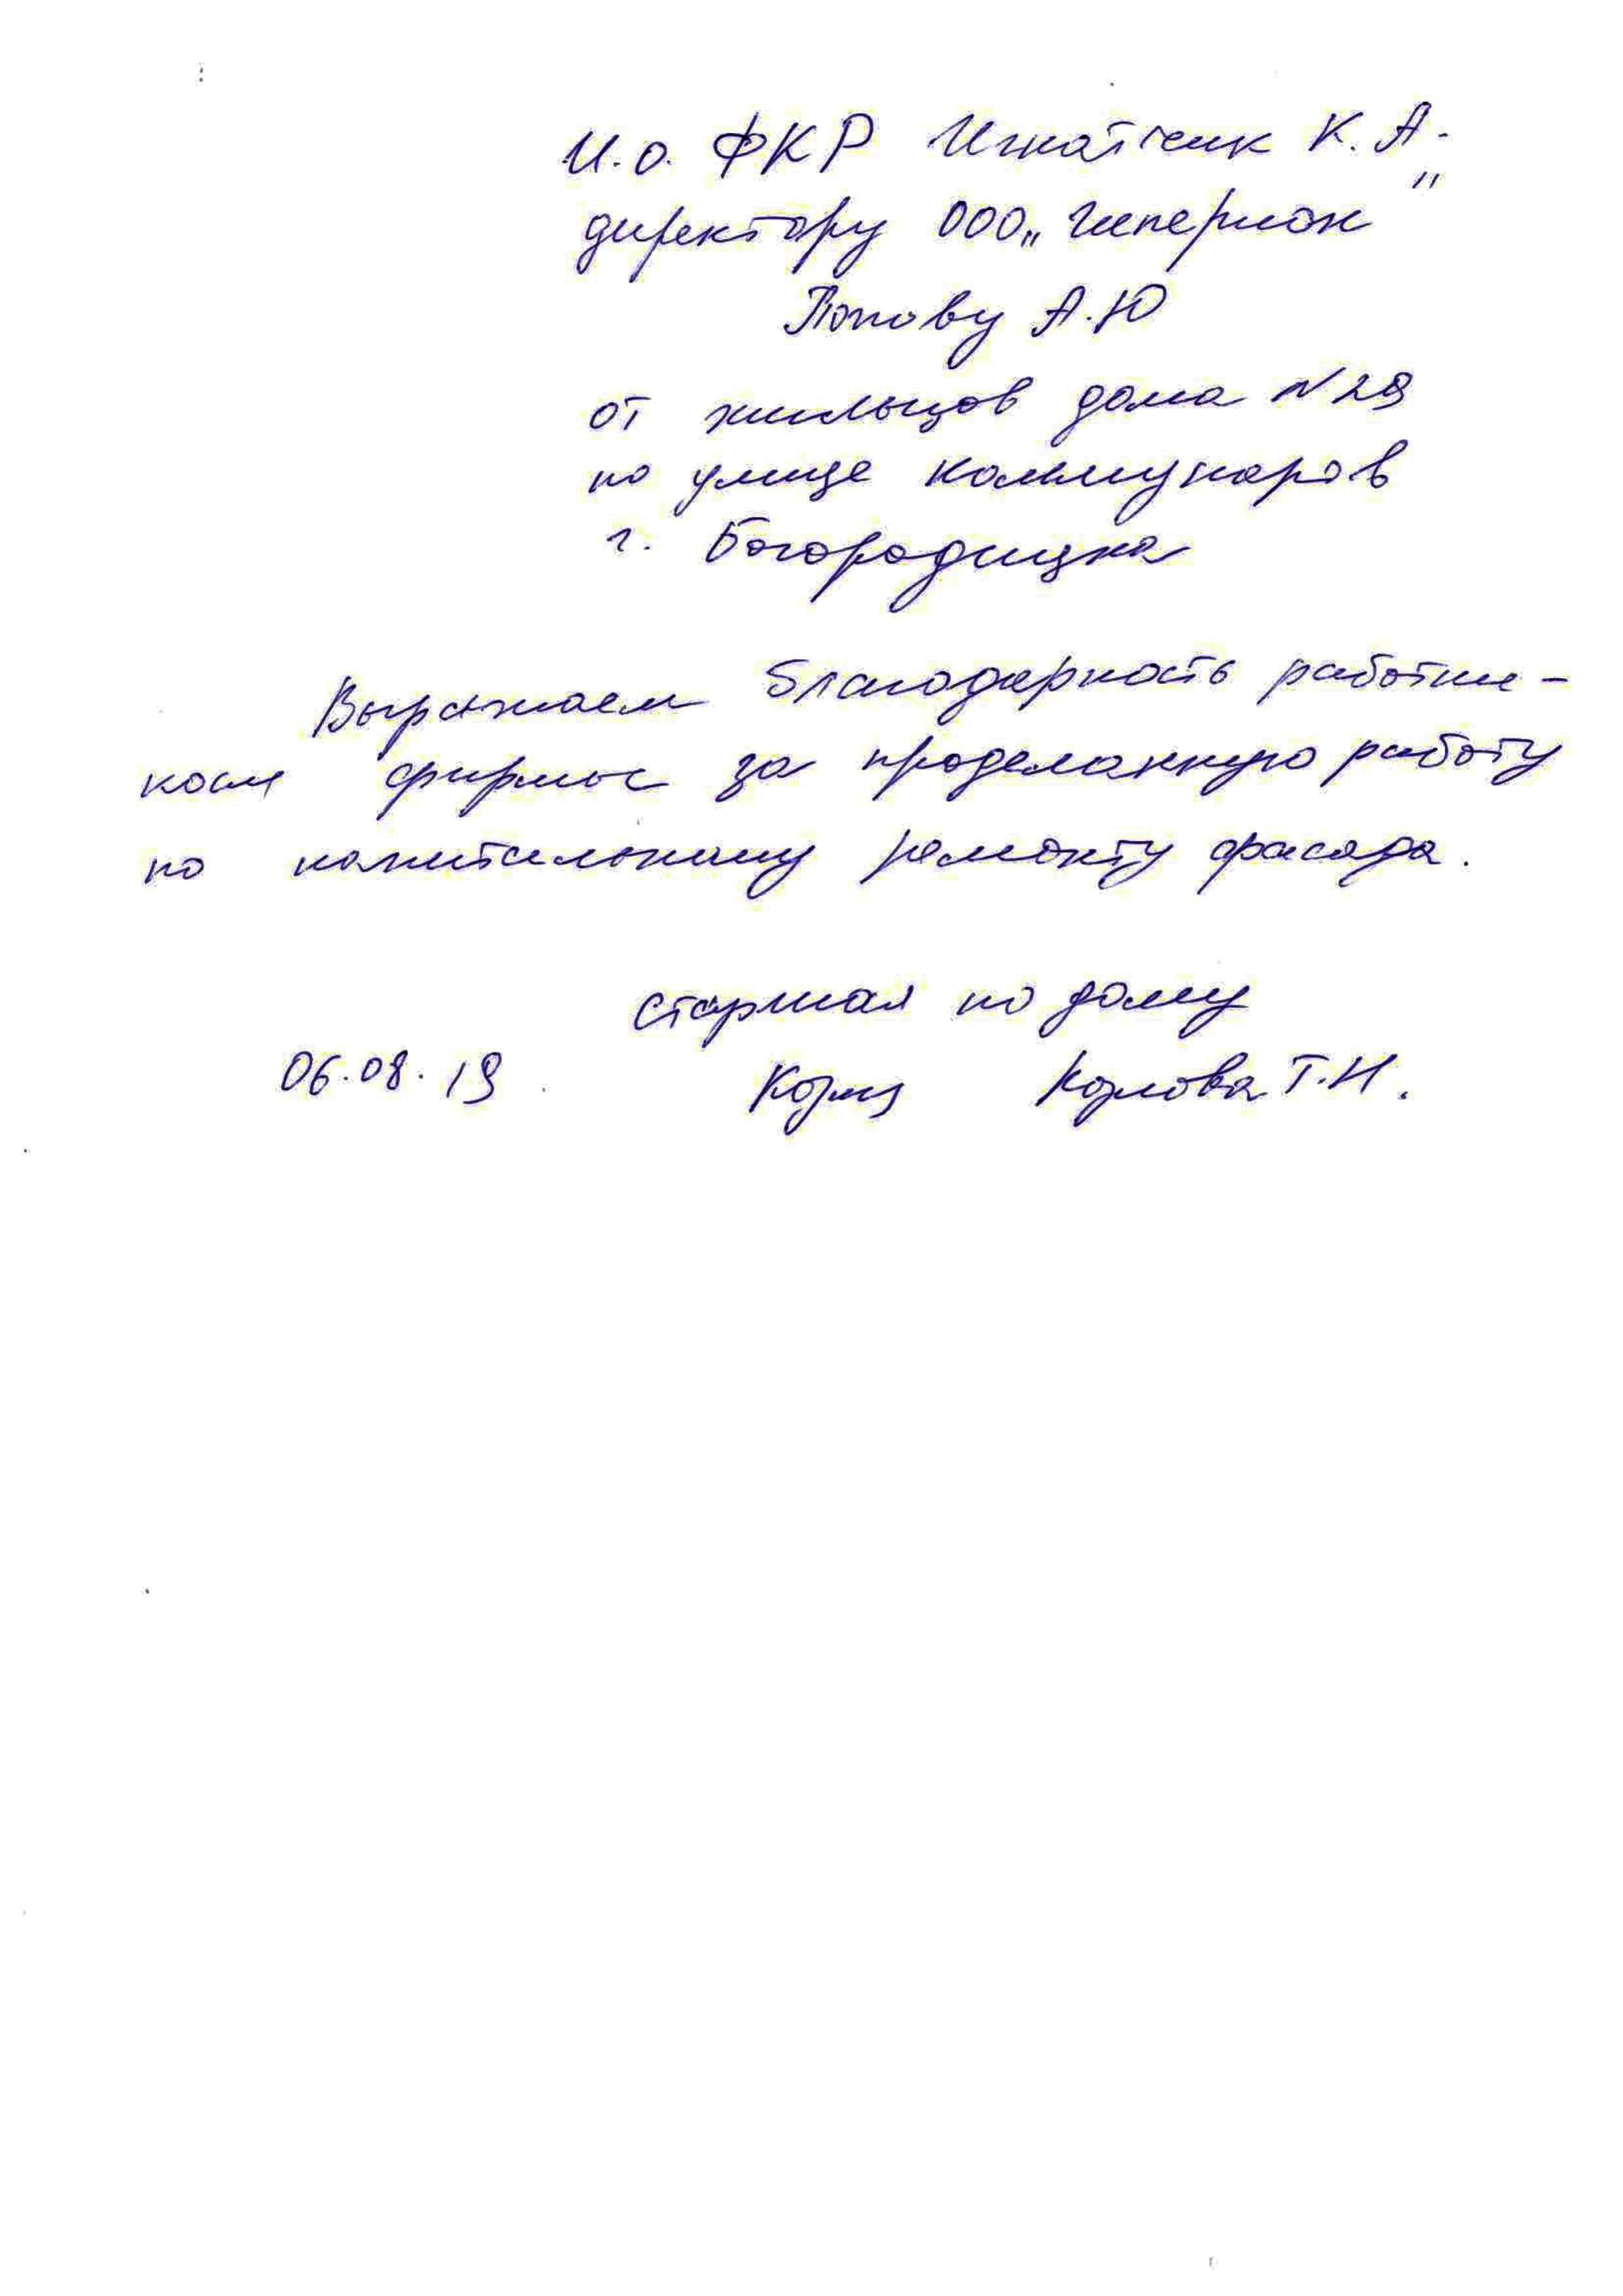 И.о. ФКР Игнатчик К.А.
директору ООО „Гиперион"
Попову А.Ю
от жильцов дома N 29
по улице Коммунаров
г. Богородицка
Выражаем благодарность работни-
кам фирмы за проделанную работу
по капитальному ремонту фасада.
Старшая по дому
06.08.19 Козлова Т.И.